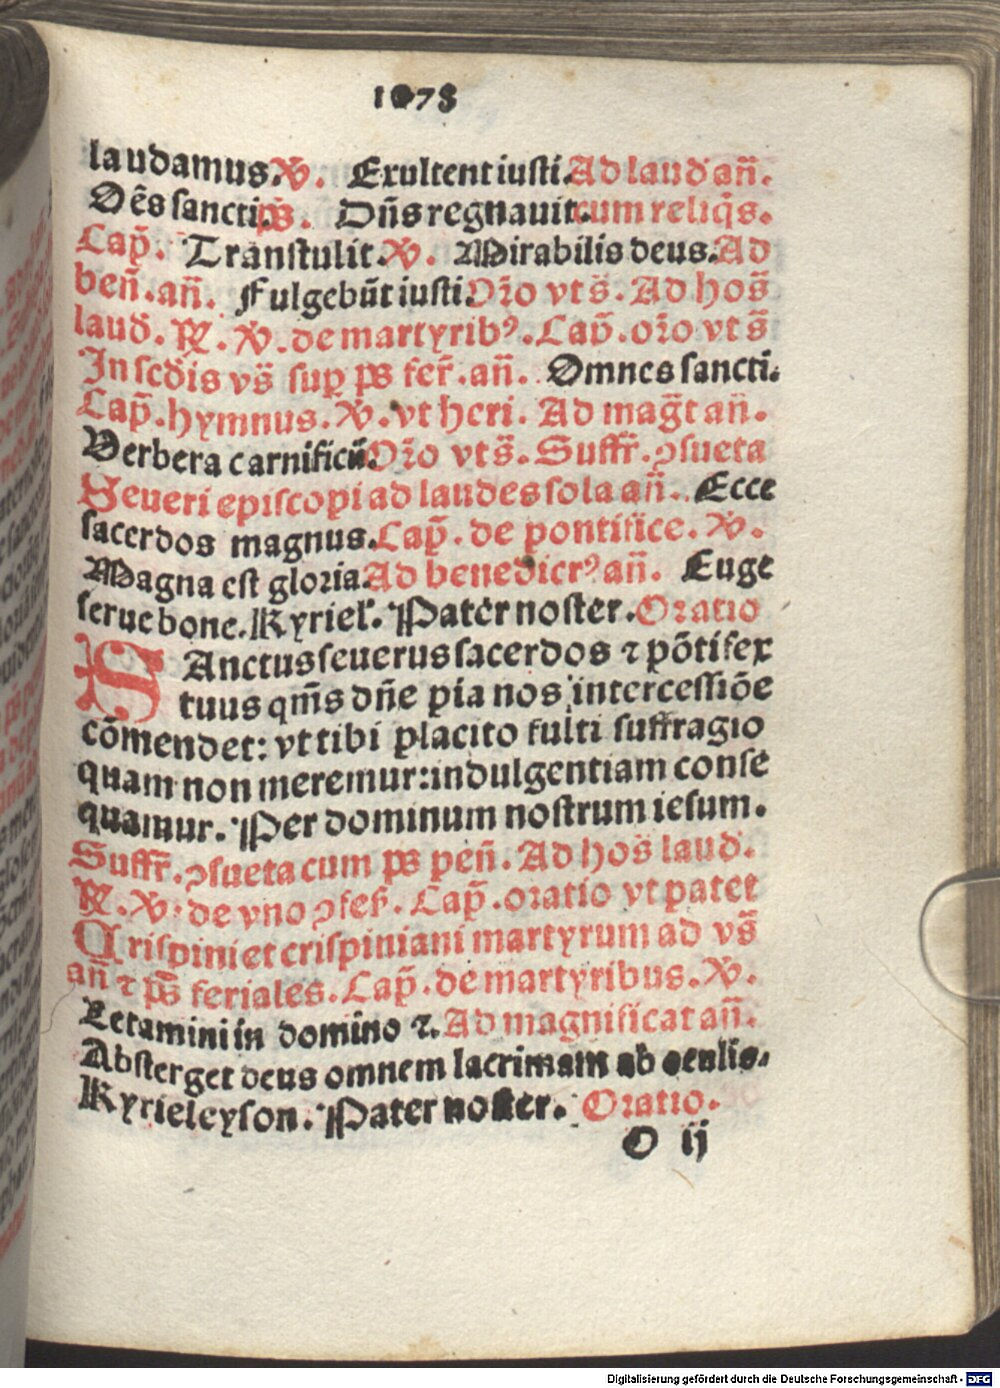 1078
laudamus. ℣. Exultent iusti. Ad laud̄ an̄.
Oēs sancti. ps̄. Dn̄s regnauit. cum reliq̄s.
Cap̄. Transtulit. ℣. Mirabilis deus. Ad
ben̄. an̄. Fulgebūt iusti. Orō vt s̄. Ad hos̄
laud̄. ℟. ℣. de martyribꝰ. Cap̄. orō vt s̄
In scd̄is vs̄ sup̄ ps̄ fer̄. an̄. Omnes sancti.
Cap̄. hymnus. ℣. vt heri. Ad maḡt an̄.
Verbera carnificū. Orō vt s̄. Suffr̄. ꝯsueta
Seueri episcopi ad laudes sola an̄. Ecce
sacerdos magnus. Cap̄. de pontifice. ℣.
Magna est gloria. Ad benedictꝰ an̄. Euge
serue bone. Kyriel̄. Pater noster. Oratio
SAnctus seuerus sacerdos ⁊ pōtifex
tuus qm̄s dn̄e pia nos intercessiōe
cōmendet: vt tibi placito fulti suffragio
quam non meremur: indulgentiam conse
quamur. Per dominum nostrum iesum.
Suffr̄. ꝯsueta cum ps̄ pen̄. Ad hos̄ laud̄.
℟. ℣. de vno ꝯfes̄. Cap̄. oratio vt patet
Crispini et crispiniani martyrum ad vs̄
an̄ ⁊ ps̄ feriales. Cap̄. de martyribus. ℣.
Letamini in domino ⁊. Ad magnificat an̄.
Absterget deus omnem lacrimam ab oculis.
Kyrieleyson. Pater noster. Oratio.
O ij
Digitalisierung gefördert durch die Deutsche Forschungsgemeinschaft - DFG